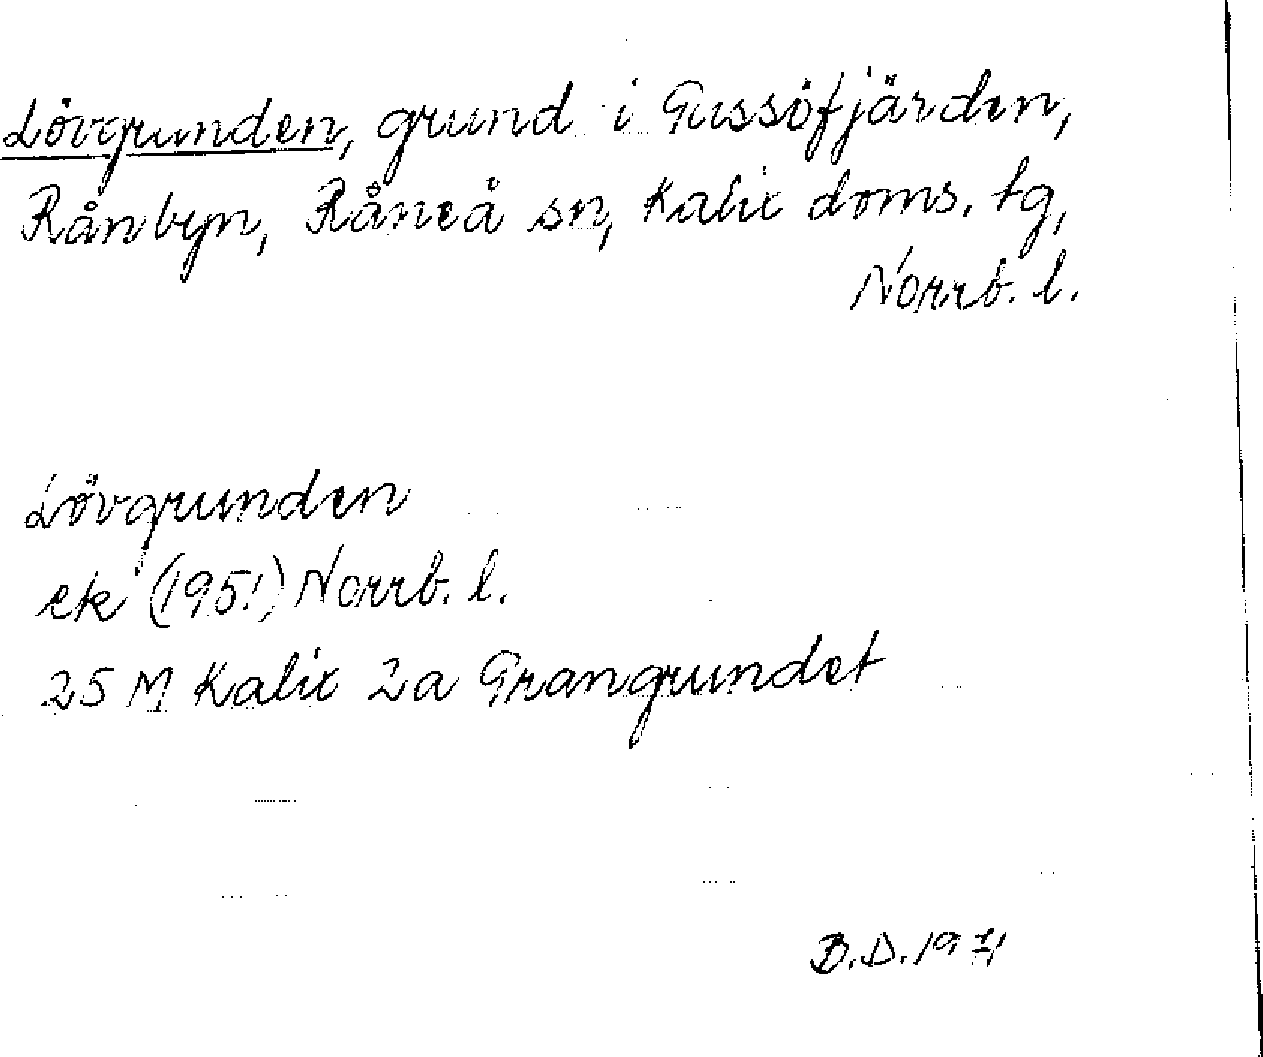 Lövgrunden, grund i Gussöfjärden,
Rånbyn, Råneå sn, Kalix doms. tg,
Norrb. l.
Lövgrunden
ek (1951) Norrb. l.
25 M Kalix 2a Grangrundet
B.D. 1971